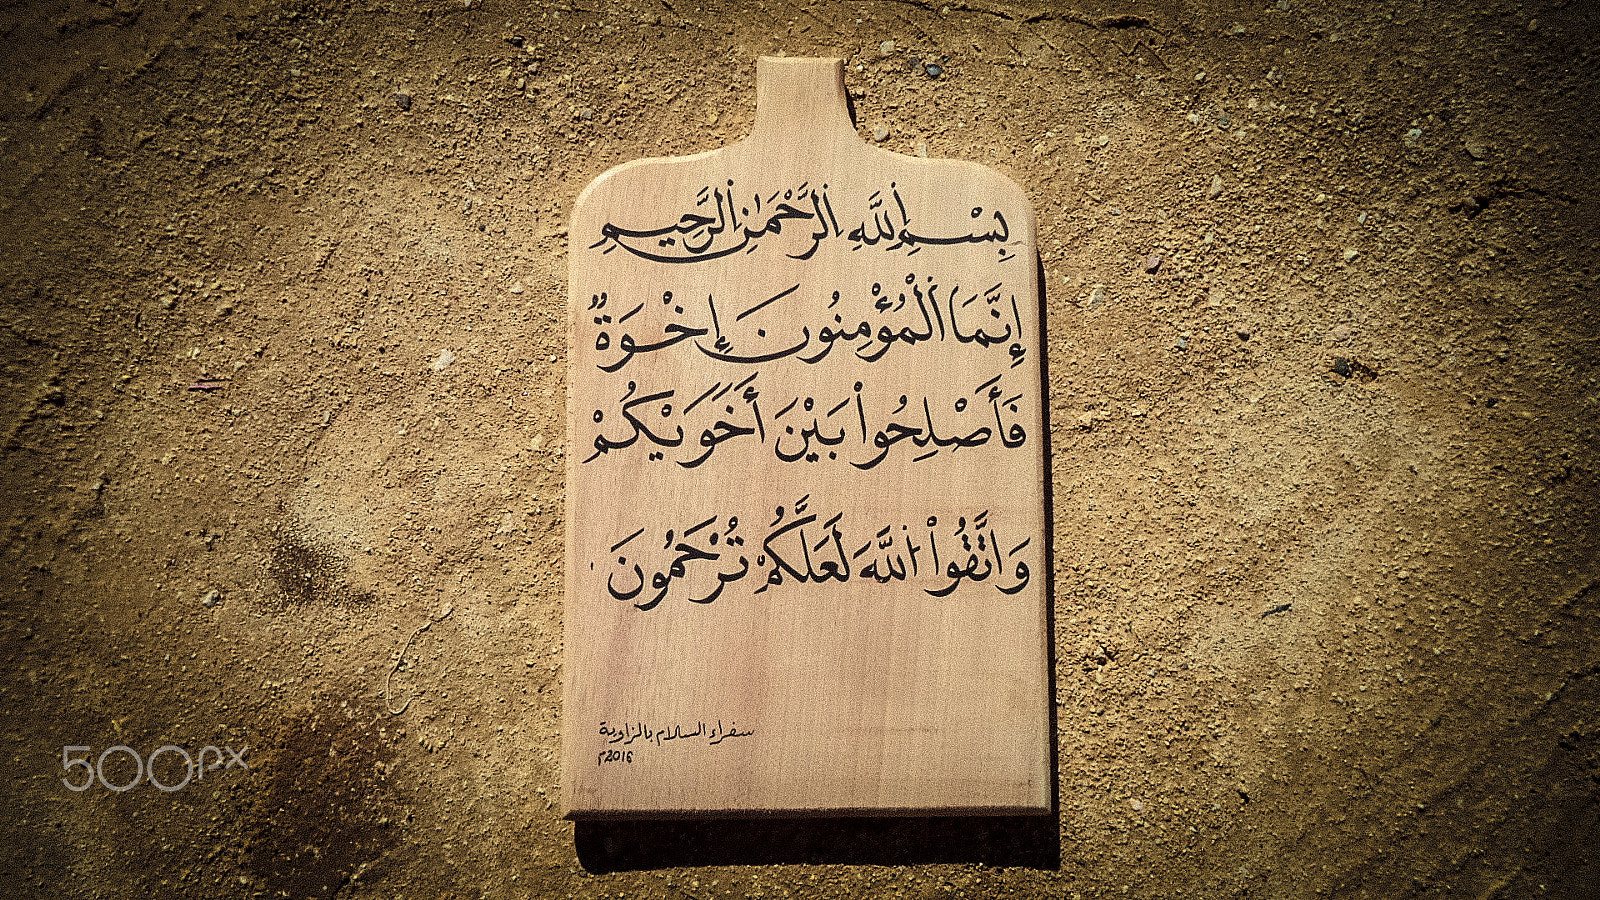 بِسْمِ اللَّهِ الرَّحْمَٰنِ الرَّحِيمِ
إِنَّمَا الْمُؤْمِنُونَ إِخْوَةٌ
فَأَصْلِحُوا بَيْنَ أَخَوَيْكُمْ
وَاتَّقُوا اللَّهَ لَعَلَّكُمْ تُرْحَمُونَ
سفراء السلام بالزاوية
2016م
500px